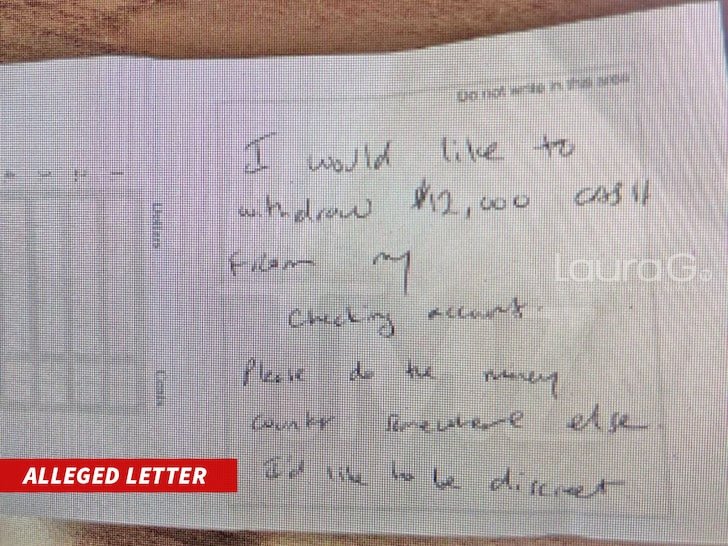 Do not write in this area
I would like to
withdraw $12,000 CASH
From my
Checking account.
Please do the money
counter somewhere else
I'd like to be discreet
Dollars
Cents
LauraG.
ALLEGED LETTER